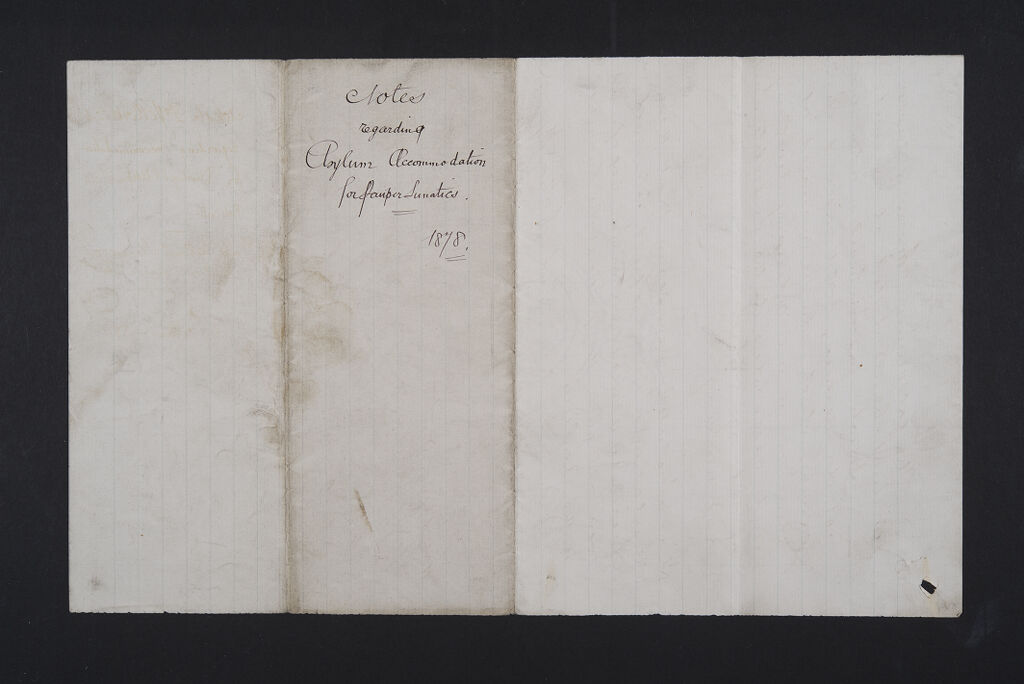 Notes
regarding
Asylum Accommodation
for Pauper Lunatics.
1878.